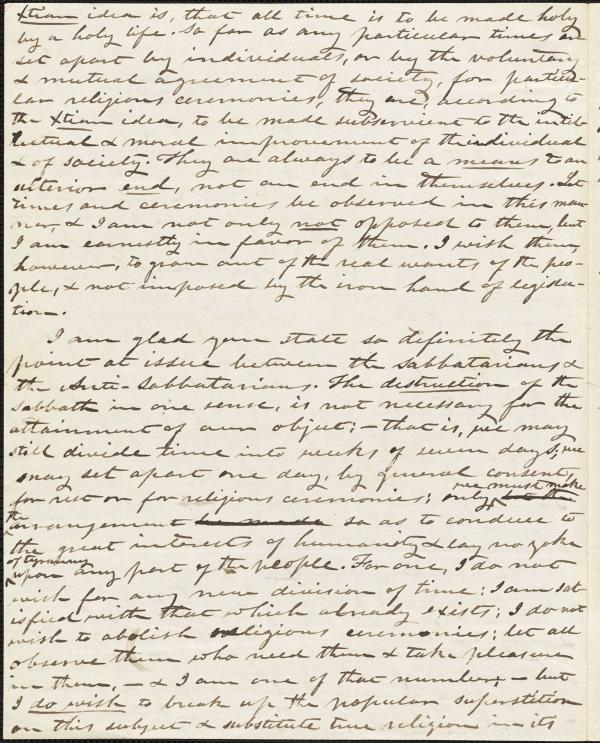 Xtian idea is, that all time is to be made holy
by a holy life. So far as any particular times are
set apart by individuals, or by the voluntary
& mutual agreement of society, for particu-
lar religious ceremonies, they are, according to
the Xtian idea, to be made subservient to the intel-
lectual & moral improvement of the individual
& of society. They are always to be a means to an
ulterior end, not an end in themselves. Let
times and ceremonies be observed in this man-
ner, & I am not only not opposed to them, but
I am earnestly in favor of them. I wish them,
however, to grow out of the real wants of the peo-
ple, & not imposed by the iron hand of legisla-
tion.
I am glad you state so definitely the
point at issue between the Sabbatarians &
the Anti-Sabbatarians. The destruction of the
Sabbath in one sense, is not necessary for the
attainment of our object; - that is, we may
still divide time into weeks of seven days; we
may set apart one day, by general consent,
for rest or for religious ceremonies; only we must make but the
the arrangement be made so as to conduce to
the great interests of humanity & lay no yoke
of tyranny upon any part of the people. For one, I do not
wish for any new division of time; I am sat-
isfied with that which already exists; I do not
wish to abolish religious ceremonies; let all
observe them who need them & take pleasure
in them, - & I am one of that number; - but
I do wish to break up the popular superstition
on this subject & substitute true religion in its